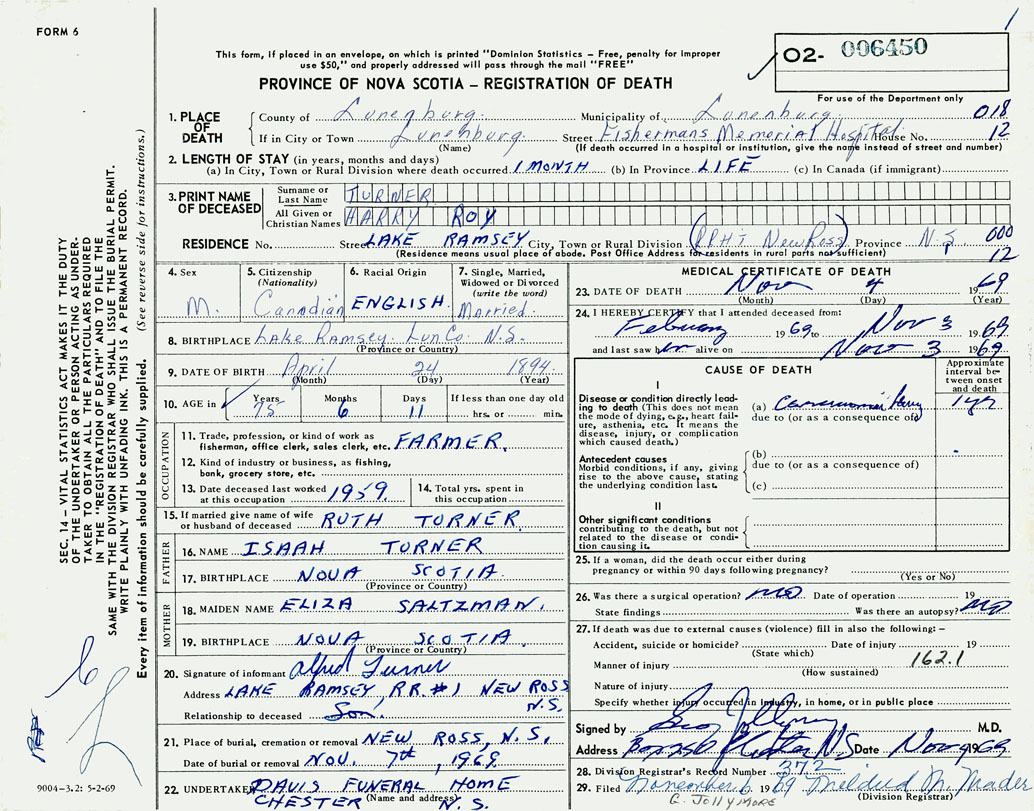 FORM 6
This form, if placed in an envelope, on which is printed "Dominion Statistics – Free, penalty for improper
use $50," and properly addressed will pass through the mail "FREE"
PROVINCE OF NOVA SCOTIA – REGISTRATION OF DEATH
O2- 006450
For use of the Department only
SEC. 14 – VITAL STATISTICS ACT MAKES IT THE DUTY
OF THE UNDERTAKER OR PERSON ACTING AS UNDER-
TAKER TO OBTAIN ALL THE PARTICULARS REQUIRED
IN THE "REGISTRATION OF DEATH" AND TO FILE THE
SAME WITH THE DIVISION REGISTRAR WHO SHALL ISSUE THE BURIAL PERMIT.
WRITE PLAINLY WITH UNFADING INK. THIS IS A PERMANENT RECORD.
Every item of information should be carefully supplied. (See reverse side for instructions.)
1. PLACE OF DEATH
County of Lunenburg. Municipality of Lunenburg. 018
If in City or Town Lunenburg. Street Fishermans Memorial Hospital House No. 12
(Name) (If death occurred in a hospital or institution, give the name instead of street and number)
2. LENGTH OF STAY (in years, months and days)
(a) In City, Town or Rural Division where death occurred 1 MONTH (b) In Province LIFE (c) In Canada (if immigrant)
3. PRINT NAME OF DECEASED
Surname or Last Name TURNER
All Given or Christian Names HARRY ROY
RESIDENCE No. Street LAKE RAMSEY City, Town or Rural Division (RR#1 New Ross) Province N.S 000
(Residence means usual place of abode. Post Office Address for residents in rural parts not sufficient) 12
4. Sex
M.
5. Citizenship
(Nationality)
Canadian
6. Racial Origin
ENGLISH.
7. Single, Married,
Widowed or Divorced
(write the word)
Married.
8. BIRTHPLACE Lake Ramsey. Lun Co. N.S.
(Province or Country)
9. DATE OF BIRTH April 24 1894
(Month) (Day) (Year)
10. AGE in Years 75 Months 6 Days 11 If less than one day old
hrs. or min.
OCCUPATION
11. Trade, profession, or kind of work as
fisherman, office clerk, sales clerk, etc. FARMER.
12. Kind of industry or business, as fishing,
bank, grocery store, etc.
13. Date deceased last worked
at this occupation 1959.
14. Total yrs. spent in
this occupation
15. If married give name of wife
or husband of deceased RUTH TURNER
FATHER
16. NAME ISAAH TURNER
17. BIRTHPLACE NOVA SCOTIA
(Province or Country)
MOTHER
18. MAIDEN NAME ELIZA SALTZMAN.
19. BIRTHPLACE NOVA SCOTIA
(Province or Country)
20. Signature of informant Alfred Turner
Address LAKE RAMSEY, RR. #1 NEW ROSS
N.S.
Relationship to deceased Son.
21. Place of burial, cremation or removal NEW ROSS, N.S.
Date of burial or removal NOV. 7th, 1969.
22. UNDERTAKER DAVIS FUNERAL HOME
CHESTER (Name and address) N.S.
9004–3.2: 5-2-69
MEDICAL CERTIFICATE OF DEATH
23. DATE OF DEATH Nov 4 1969
(Month) (Day) (Year)
24. I HEREBY CERTIFY that I attended deceased from:
Febuary 1969 to Nov 3 1969
and last saw him alive on Nov 3 1969.
CAUSE OF DEATH
Approximate interval between onset and death
I
Disease or condition directly lead-
ing to death (This does not mean
the mode of dying, e.g., heart fail-
ure, asthenia, etc. It means the
disease, injury, or complication
which caused death.)
(a) 1 yr
due to (or as a consequence of)
Antecedent causes
Morbid conditions, if any, giving
rise to the above cause, stating
the underlying condition last.
(b)
due to (or as a consequence of)
(c)
II
Other significant conditions
contributing to the death, but not
related to the disease or condi-
tion causing it.
25. If a woman, did the death occur either during
pregnancy or within 90 days following pregnancy?
(Yes or No)
26. Was there a surgical operation? no Date of operation 19
State findings Was there an autopsy? no
27. If death was due to external causes (violence) fill in also the following: –
Accident, suicide or homicide? Date of injury 19
(State which) 162.1
Manner of injury
(How sustained)
Nature of injury
Specify whether injury occurred in Industry, in home, or in public place
Signed by M.D.
Address N.S Date Nov 1969
28. Division Registrar's Record Number 372
29. Filed November 6 1969 Mildred M. Meader
(Division Registrar)
G. JOLLYMORE